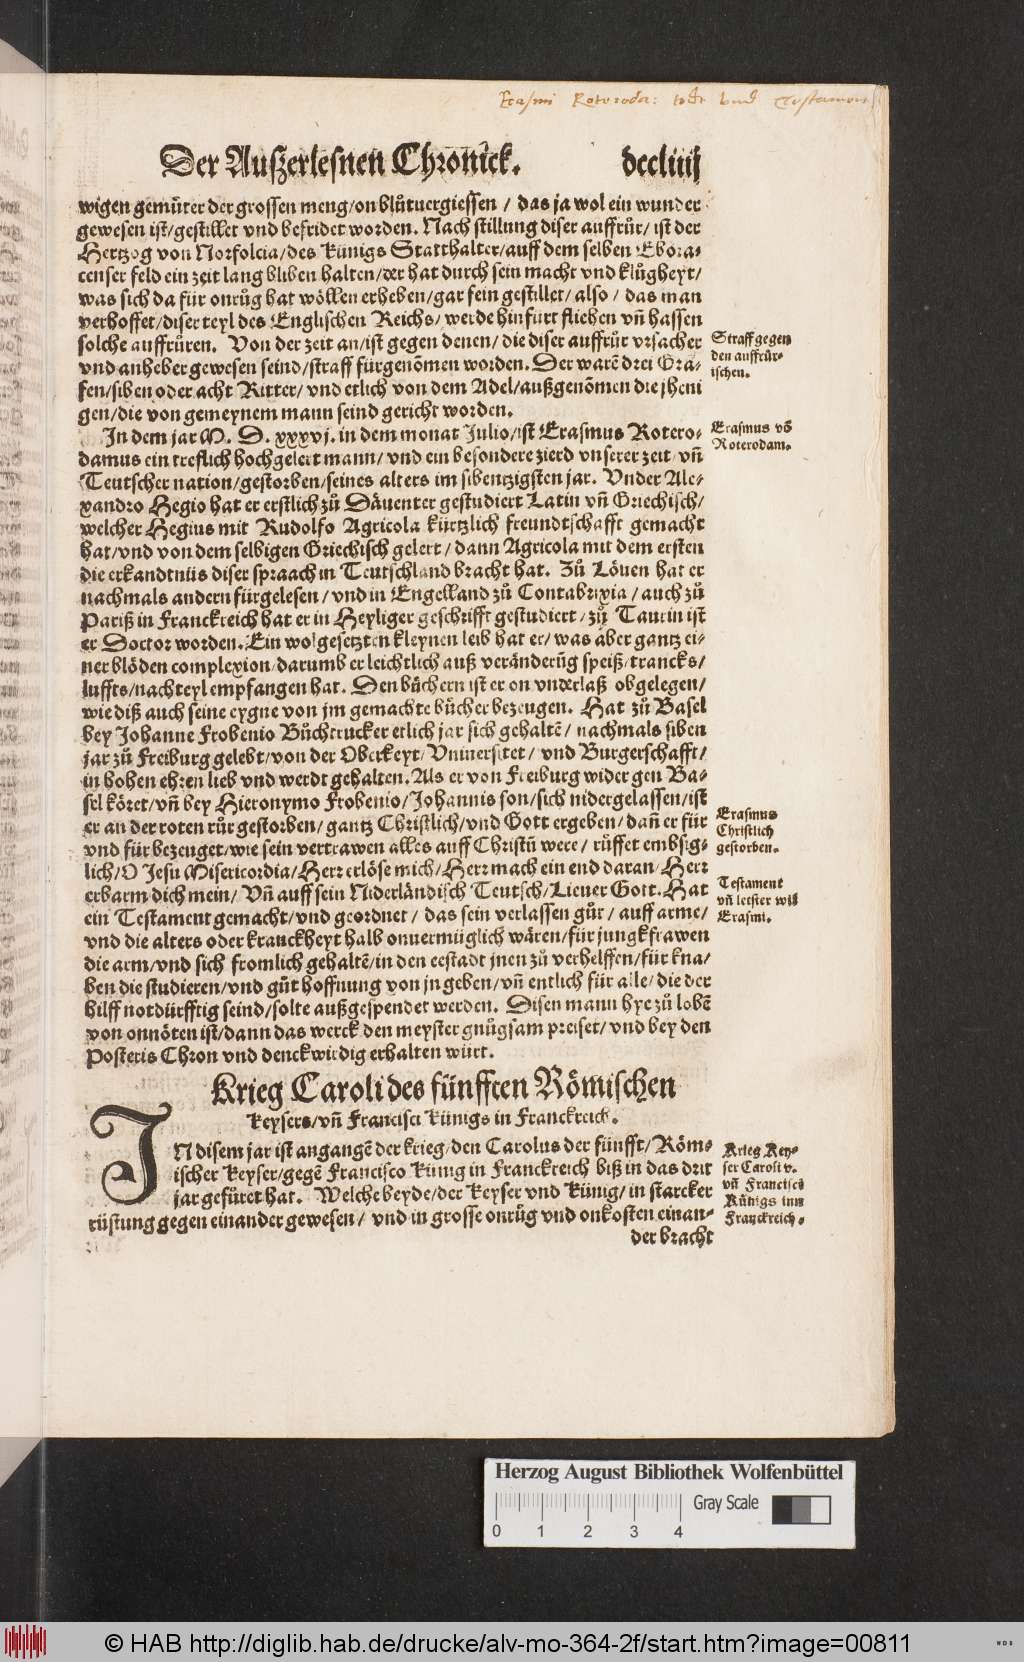 Erasmi Roteroda: todt vnd Testament
Der Außerlesnen Chronick. dccliiij
wigen gemüter der grossen meng/on blůtuergiessen / das ja wol ein wunder
gewesen ist/gestillet vnd befridet worden. Nach stillung diser auffrůr/ ist der
Hertzog von Norfolcia/des Künigs Statthalter/auff dem selben Ebora-
censer feld ein zeit lang bliben halten/der hat durch sein macht vnd klůgheyt/
was sich da für onrůg hat wöllen erheben/gar fein gestillet/ also / das man
verhoffet/diser teyl des Englischen Reichs/ werde hinfurt fliehen vñ hassen
solche auffrůren. Von der zeit an/ist gegen denen/ die diser auffrůr vrsacher
vnd anheber gewesen seind/straff fürgenõmen worden. Der warẽ drei Gra-
fen/siben oder acht Ritter/ vnd etlich von dem Adel/außgenõmen die jheni
gen/die von gemeynem mann seind gericht worden.
Straff gegen
den auffrůr-
ischen.
In dem jar M. D. xxxvj. in dem monat Julio/ist Erasmus Rotero-
damus ein treflich hochgelert mann/ vnd ein besondere zierd vnserer zeit/ vñ
Teutscher nation/gestorben/seines alters im sibentzigsten jar. Vnder Ale-
xandro Hegio hat er erstlich zů Dauenter gestudiert Latin vñ Griechisch/
welcher Hegius mit Rudolfo Agricola kürtzlich freundtschafft gemacht
hat/vnd von dem selbigen Griechisch gelert / dann Agricola mit dem ersten
die erkandtnüs diser spraach in Teutschland bracht hat. Zů Löuen hat er
nachmals andern fürgelesen / vnd in Engelland zů Contabrixia / auch zů
Pariß in Franckreich hat er in Heyliger geschrifft gestudiert / zů Taurin ist
er Doctor worden. Ein wolgesetzten kleynen leib hat er/ was aber gantz ei-
ner blöden complexion/darumb er leichtlich auß veränderũg speiß/trancks/
luffts/nachteyl empfangen hat. Den bůchern ist er on vnderlaß obgelegen/
wie diß auch seine eygne von jm gemachte bůcher bezeugen. Hat zů Basel
bey Johanne Frobenio Bůchtrucker etlich jar sich gehaltẽ / nachmals siben
jar zů Freiburg gelebt/von der Oberkeyt/ Vniuersitet / vnd Burgerschafft/
in hohen ehren lieb vnd werdt gehalten. Als er von Freiburg wider gen Ba-
sel köret/vñ bey Hieronymo Frobenio/Johannis son/sich nidergelassen/ist
er an der roten růr gestorben/ gantz Christlich/vnd Gott ergeben/ dañ er für
vnd für bezeuget/wie sein vertrawen alles auff Christũ were / růffet embsig-
lich/O Jesu Misericordia/Herr erlöse mich/Herr mach ein end daran/ Herr
erbarm dich mein/ Vñ auff sein Niderländisch Teutsch/Lieuer Gott. Hat
ein Testament gemacht/vnd geordnet / das sein verlassen gůt / auff arme/
vnd die alters oder kranckheyt halb onuermüglich wären/für jungkfrawen
die arm/vnd sich fromlich gehaltẽ/in den eestadt jnen zů verhelffen/für kna-
ben die studieren/vnd gůt hoffnung von jn geben/vñ entlich für alle/die der
hilff notdürfftig seind/solte außgespendet werden. Disen mann hye zů lobẽ
von onnöten ist/dann das werck den meyster gnůgsam preiset/ vnd bey den
Posteris Chron vnd denckwirdig erhalten würt.
Erasmus võ
Roterodam.
Erasmus
Christlich
gestorben.
Testament
vñ letster wil
Erasmi.
Krieg Caroli des fünfften Römischen
Keysers/vñ Francisci Künigs in Franckreich.
IN disem jar ist angangẽ der krieg/den Carolus der fünfft/ Röm-
ischer Keyser/gegẽ Francisco Künig in Franckreich biß in das drit
jar gefüret hat. Welche beyde/der Keyser vnd Künig/ in starcker
rüstung gegen einander gewesen / vnd in grosse onrůg vnd onkosten einan-
der bracht
Krieg Key-
ser Caroli v.
vñ Francisci
Künigs inn
Franckreich.
Herzog August Bibliothek Wolfenbüttel
Gray Scale
0 1 2 3 4
© HAB http://diglib.hab.de/drucke/alv-mo-364-2f/start.htm?image=00811